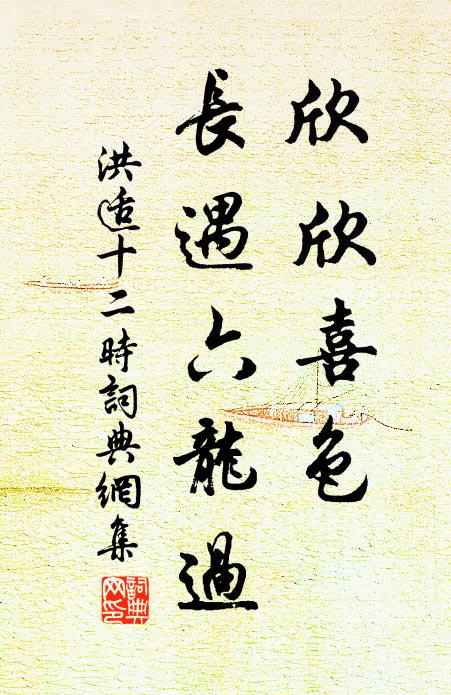 欣欣喜色
長遇六龍過
洪适十二時詞典網集
詞典網印